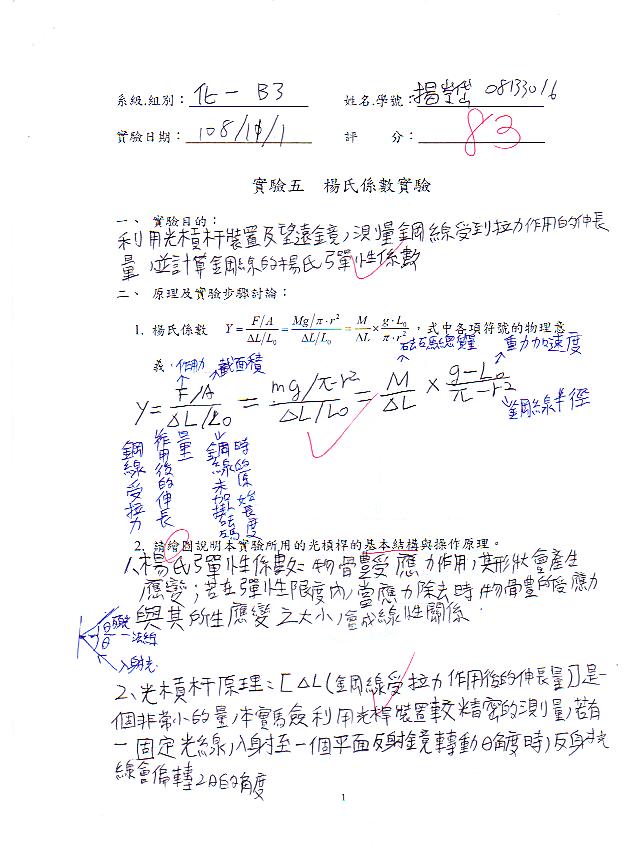 系級.組別：化一 B3 姓名.學號：08133016
實驗日期：108/10/1 評 分：83
實驗五 楊氏係數實驗
一、 實驗目的：
利用光槓杆裝置及望遠鏡，測量鋼線受到拉力作用的伸長
量，並計算鋼線的楊氏彈性係數
二、 原理及實驗步驟討論：
1. 楊氏係數 Y = (F/A)/(ΔL/L₀) = (Mg/π·r²)/(ΔL/L₀) = M/ΔL × (g·L₀)/(π·r²)，式中各項符號的物理意
義。
作用力 截面積 砝碼總質量 重力加速度
Y = (F/A)/(ΔL/L₀) = (mg/π-r²)/(ΔL/L₀) = M/ΔL × (g-L₀)/(π-r²)
鋼線半徑
鋼線受拉力作用後的伸長量
鋼線未加掛砝碼時的原始長度
2. 請繪圖說明本實驗所用的光槓桿的基本結構與操作原理。
1、楊氏彈性係數：物體受應力作用，其形狀會產生
應變；若在彈性限度內，當應力除去時物體所受應力
與其所生應變之大小，會成線性關係．
θ 法線
θ
入射光
2、光槓杆原理：[ΔL(鋼線受拉力作用後的伸長量)]是一
個非常小的量，本實驗利用光桿裝置較精密的測量，若有
一固定光線，入射至一個平面反射鏡轉動θ角度時，反射光
線會偏轉2θ的角度
1